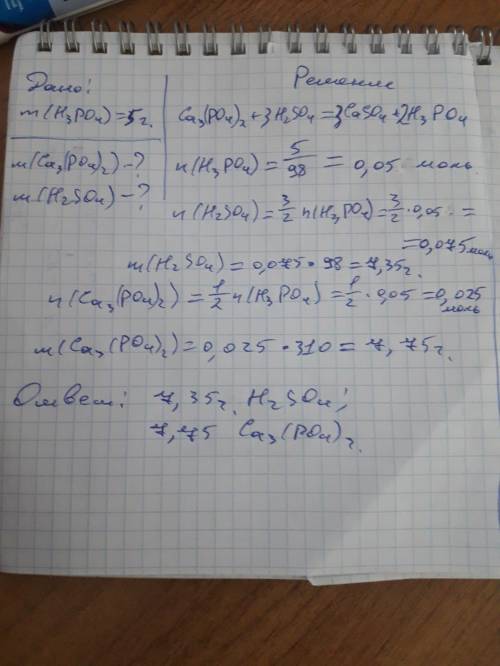 Дано:
m(H₃PO₄)=5г.
m(Ca₃(PO₄)₂)-?
m(H₂SO₄)-?
Решение
Ca₃(PO₄)₂+3H₂SO₄=3CaSO₄+2H₃PO₄
n(H₃PO₄)=5/98=0,05 моль
n(H₂SO₄)=3/2 n(H₃PO₄)=3/2·0,05=
=0,075моль
m(H₂SO₄)=0,075·98=7,35г.
n(Ca₃(PO₄)₂)=1/2 n(H₃PO₄)=1/2·0,05=0,025
моль
m(Ca₃(PO₄)₂)=0,025·310=7,75г.
Ответ: 7,35г. H₂SO₄;
7,75 Ca₃(PO₄)₂.